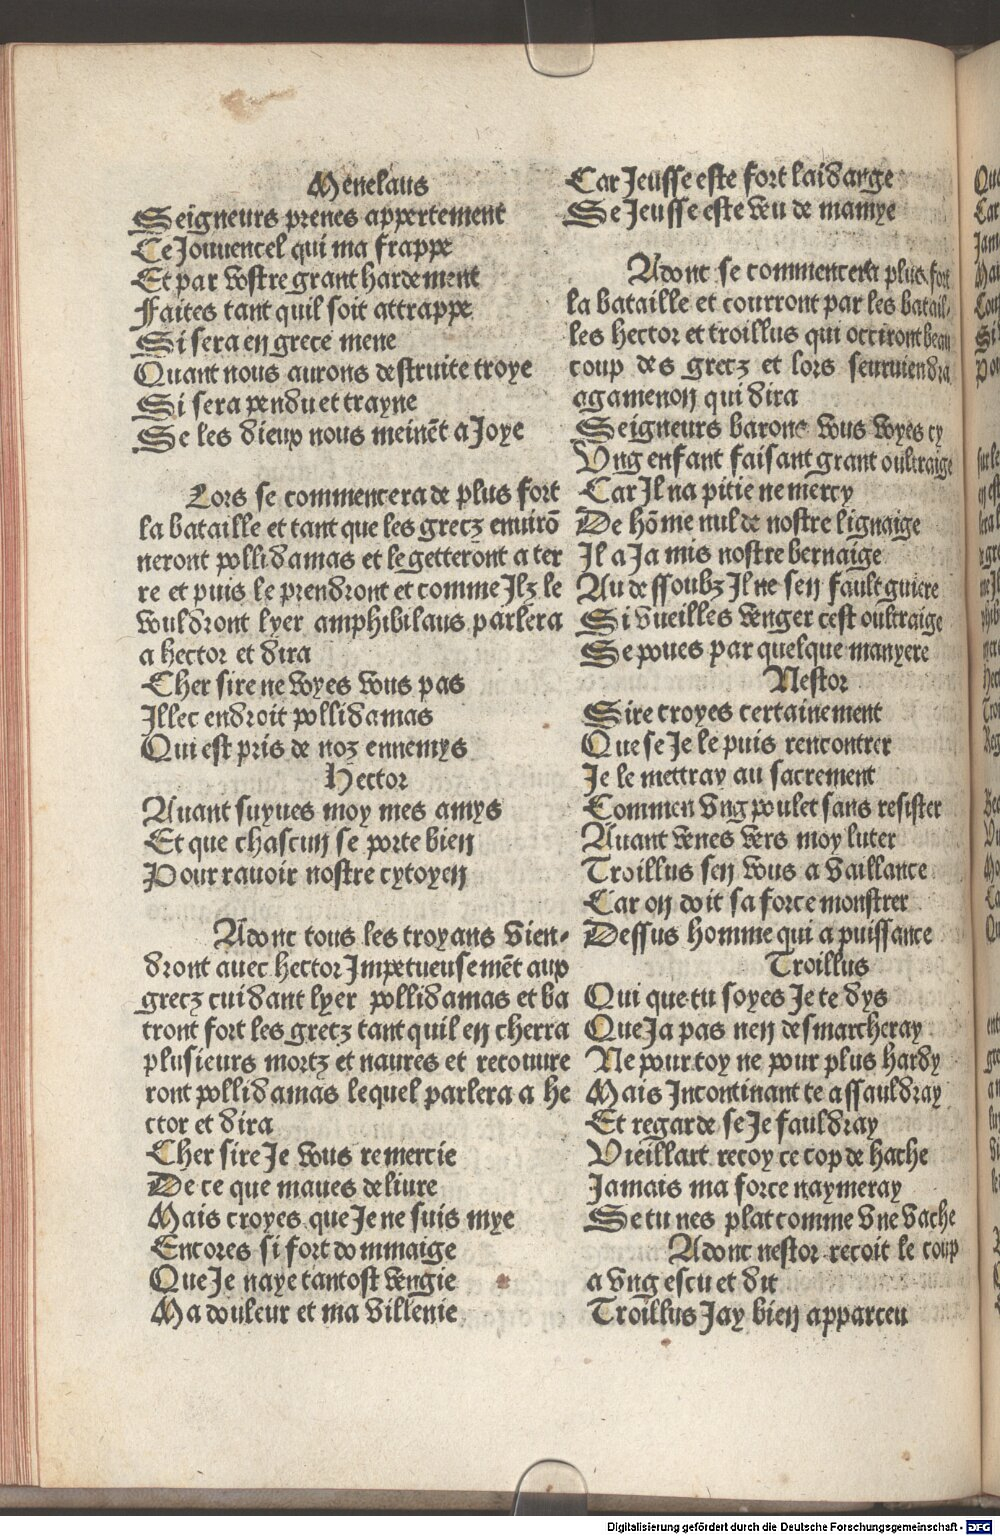 Menelaus
Seigneurs prenes appertement
Ce Jouuencel qui ma frappe
Et par vostre grant hardement
Faites tant quil soit attrappe
Si sera en grece mene
Quant nous aurons destruite troye
Si sera pendu et trayne
Se les dieux nous meinēt a Joye
Lors se commencera de plus fort
la bataille et tant que les grecz enuirō
neront pollidamas et le getteront a ter
re et puis le prendront et comme Jlz le
vouldront lyer amphibilaus parlera
a hector et dira
Cher sire ne voyes vous pas
Jllec endroit pollidamas
Qui est pris de noz ennemys
Hector
Auant suyues moy mes amys
Et que chascun se porte bien
Pour rauoir nostre cytoyen
Adonc tous les troyans vien-
dront auec hector Jmpetueusemēt aux
grecz cuidant lyer pollidamas et ba
tront fort les gretz tant quil en cherra
plusieurs mortz et naures et recouure
ront pollidamas lequel parlera a he
ctor et dira
Cher sire Je vous remercie
De ce que maues deliure
Mais croyes que Je ne suis mye
Encores si fort dommaige
Que Je naye tantost vengie
Ma douleur et ma villenie
Car Jeusse este fort laidange
Se Jeusse este veu de mamye
Adonc se commencera plus fort
la bataille et courront par les batail-
les hector et troillus qui occiront beau
coup des grecz et lors seuruiendra
agamenon qui dira
Seigneurs barons vous voyes cy
Vng enfant faisant grant oultraige
Car Jl na pitie ne mercy
De hōme nul de nostre lignaige
Jl a Ja mis nostre bernaige
Au dessoubz Jl ne sen fault guiere
Si vueilles venger cest oultraige
Se poues par quelque manyere
Nestor
Sire croyes certainement
Que se Je le puis rencontrer
Je le mettray au sacrement
Commen vng poulet sans resister
Auant venes vers moy luter
Troillus sen vous a vaillance
Car on doit sa force monstrer
Dessus homme qui a puissance
Troillus
Qui que tu soyes Je te dys
Que Ja pas nen desmarcheray
Ne pour toy ne pour plus hardy
Mais Jncontinant te assauldray
Et regarde se Je fauldray
Vieillart recoy ce cop de hache
Jamais ma force naymeray
Se tu nes plat comme vne vache
Adonc nestor recoit le coup
a vng escu et dit
Troillus Jay bien apparceu
Digitalisierung gefördert durch die Deutsche Forschungsgemeinschaft - DFG